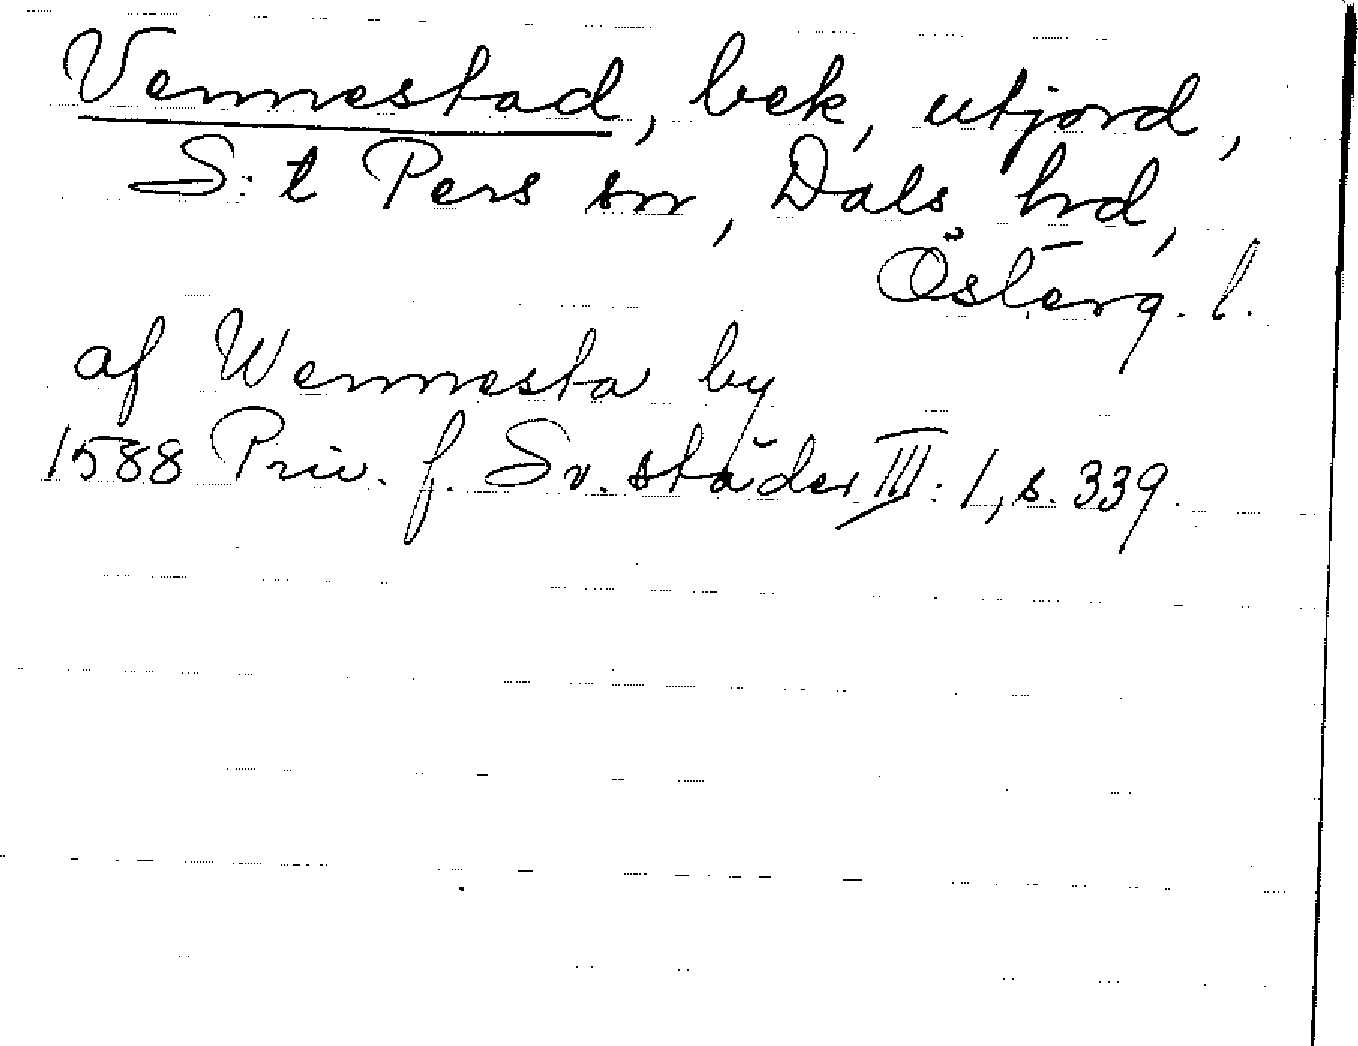 Vennestad, bek, utjord,
S:t Pers sn, Dals hd,
Österg. l.
af Wennesta by
1588 Priv. f. Sv. städer III: 1, s. 339.